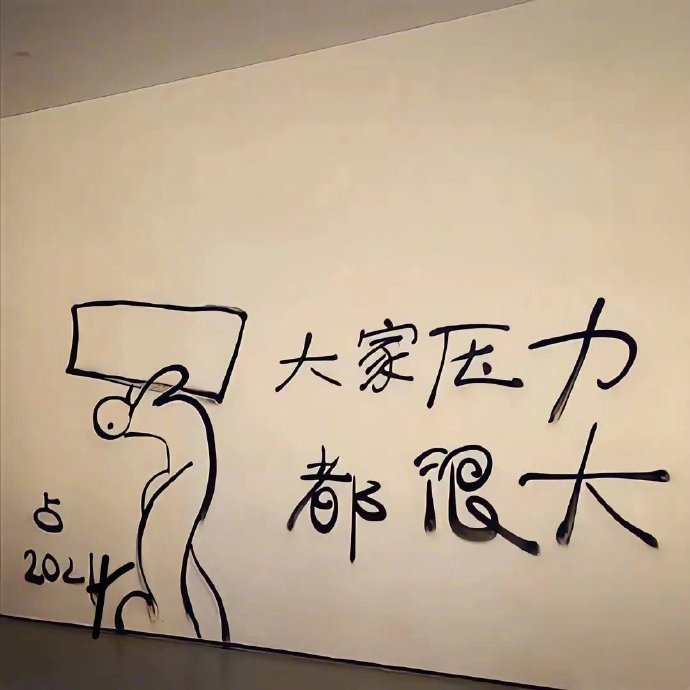 大家压力
都很大
占
2024